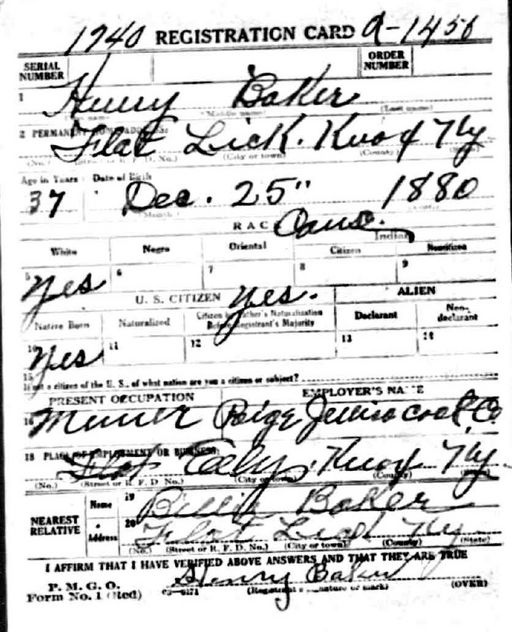 1740 REGISTRATION CARD A-1456
SERIAL NUMBER ORDER NUMBER
1 Henry Baker
(Middle name) (Last name)
2 PERMANENT HOME ADDRESS:
Flat Lick. Knox Ky
(No.) (Street or R. F. D. No.) (City or town) (County)
Age in Years Date of Birth
37 Dec. 25" 1880
RACE Cauc.
White Negro Oriental Indian
Citizen Noncitizen
5 Yes 6 7 8 9
U. S. CITIZEN Yes. ALIEN
Native Born Naturalized Citizen by Father's Naturalization Before Registrant's Majority Declarant Non-declarant
10 Yes 11 12 13 14
15 If not a citizen of the U. S., of what nation are you a citizen or subject?
PRESENT OCCUPATION EMPLOYER'S NAME
16 Miner Paige Coal Co
18 PLACE OF EMPLOYMENT OR BUSINESS:
Flat Knox Ky
(No.) (Street or R. F. D. No.) (City or town) (County)
NEAREST RELATIVE
Name 19 Baker
Address 20 Flat Lick Ky
(No.) (Street or R. F. D. No.) (City or town) (County) (State)
I AFFIRM THAT I HAVE VERIFIED ABOVE ANSWERS AND THAT THEY ARE TRUE
P. M. G. O.
Form No. 1 (Red) Henry Baker
(Registrant's signature or mark) (OVER)